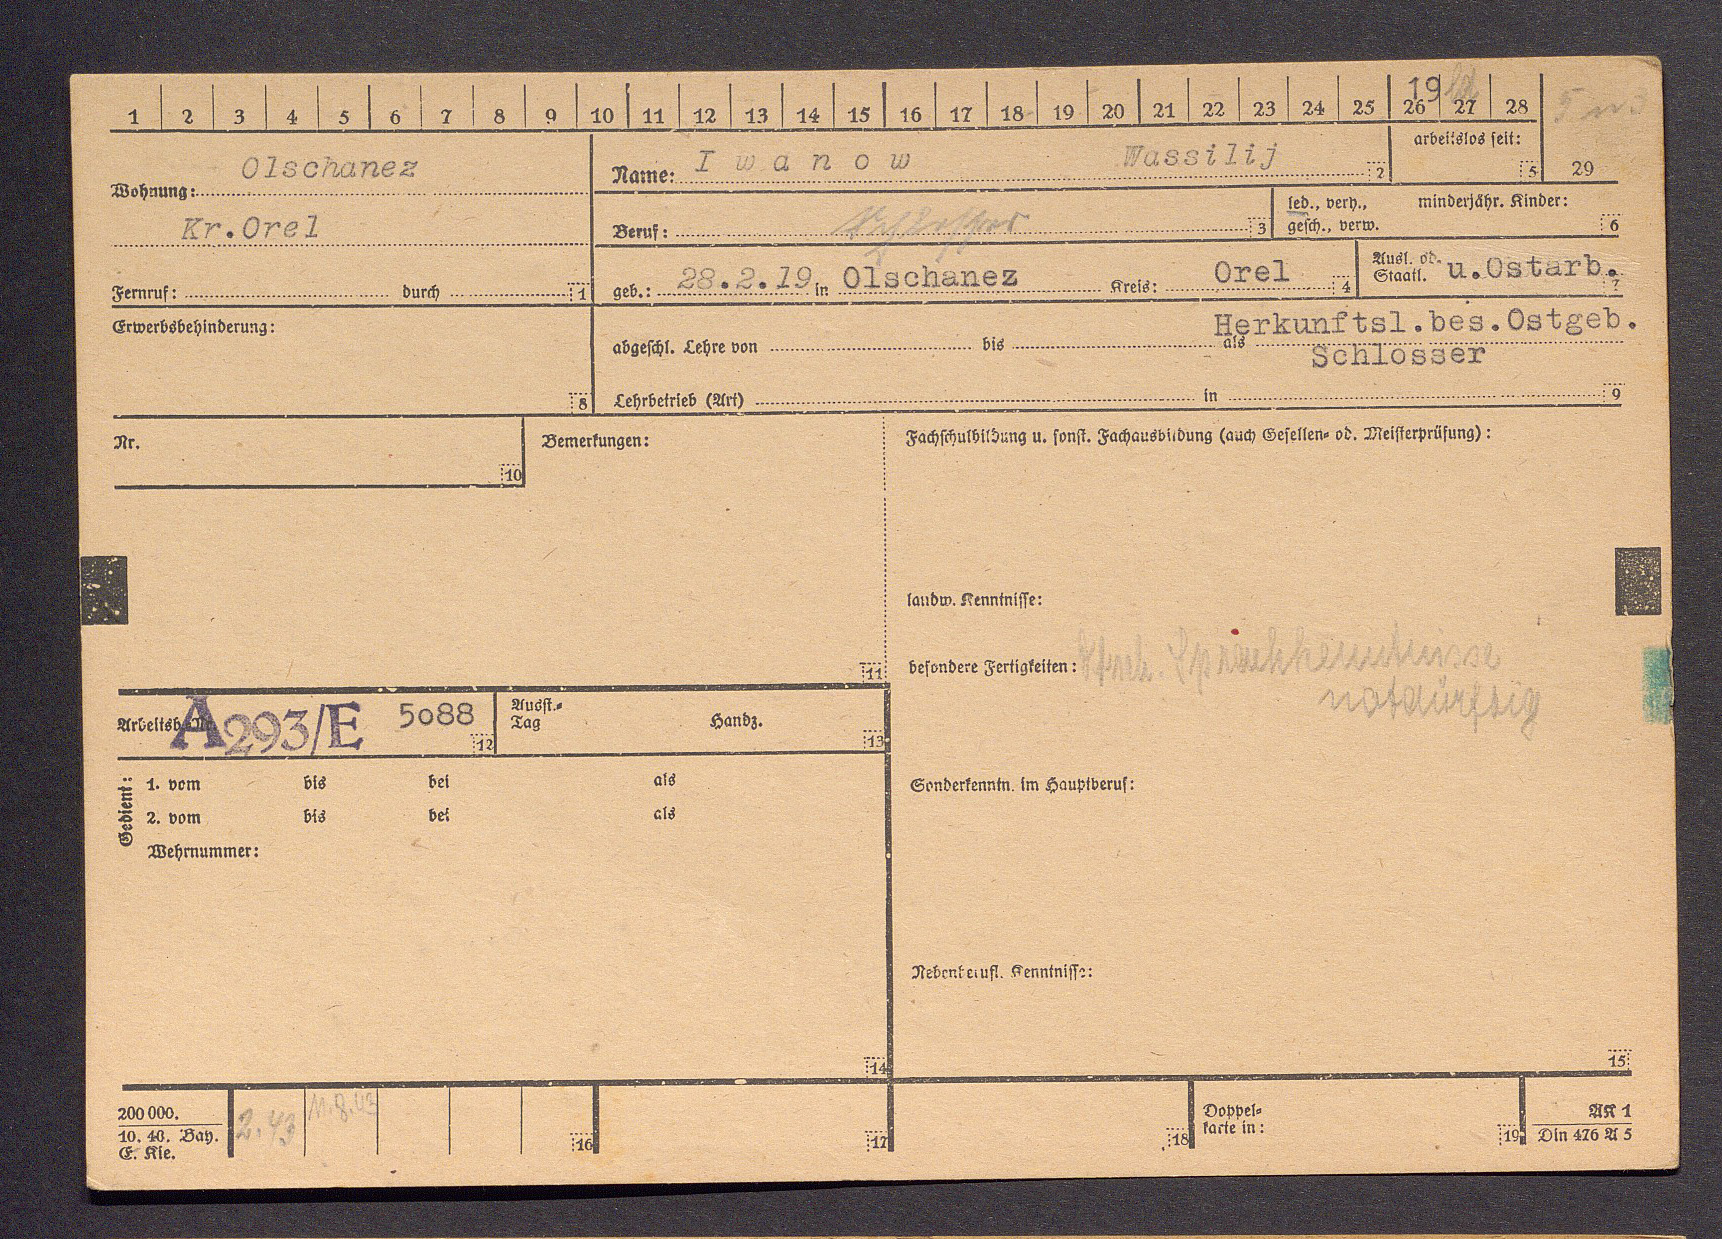 19
1 2 3 4 5 6 7 8 9 10 11 12 13 14 15 16 17 18 19 20 21 22 23 24 25 26 27 28
Olschanez
Wohnung:
Kr.Orel
Fernruf: durch 1
Name: I w a n o w Wassilij 2
arbeitslos seit: 5
29
Beruf: 3
led., verh., minderjähr. Kinder:
gesch., verw. 6
geb.: 28.2.19 in Olschanez Kreis: Orel 4
Ausl. od. u.Ostarb.
Staatl. 7
Erwerbsbehinderung: 8
Herkunftsl.bes.Ostgeb.
abgeschl. Lehre von bis als
Schlosser
Lehrbetrieb (Art) in 9
Nr. 10
Bemerkungen: 11
Fachschulbildung u. sonst. Fachausbildung (auch Gesellen- od. Meisterprüfung):
landw. Kenntnisse:
besondere Fertigkeiten: Sprachkenntnisse
notdürftig
Arbeitsb.-Nr. A293/E 5088 12
Ausst.- Handz.
Tag 13
Gedient:
1. vom bis bei als
2. vom bis bei als
Wehrnummer:
14
Sonderkenntn. im Hauptberuf:
Nebenberufl. Kenntnisse:
15
200 000.
10. 40. Bay.
E. Kie.
2.43 11.8.43
16 17 18
Doppel-
karte in: 19
AK 1
Din 476 A 5